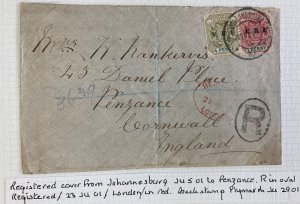 Mrs K. Nankervis
43 Daniel Place.
Penzance
Cornwall
England
3639
R
PENNY
Registered cover from Johannesburg Ju 5 01 to Penzance. R in oval
Registered / 23 Ju 01 / London / in red. Backstamp Plymouth Ju 29 01